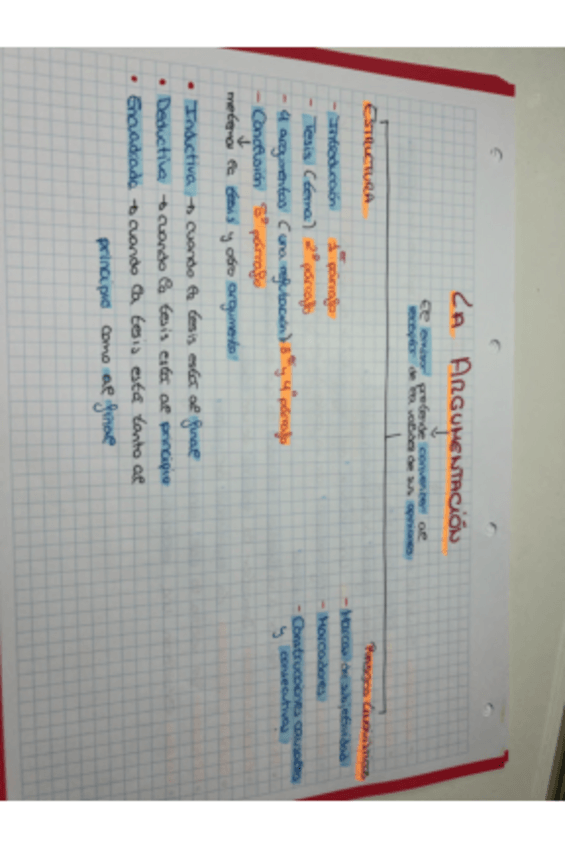 LA ARGUMENTACIÓN
EL emisor pretende convencer al
receptor de la validez de sus opiniones
ESTRUCTURA
- Introducción 1er párrafo
- Tesis (tema) 2º párrafo
- 4 argumentos (una refutación) 3er y 4º párrafo
- Conclusión 5º párrafo
metemos la tesis y otro argumento
• Inductiva → cuando la tesis esta al final
• Deductiva → cuando la tesis esta al principio
• Encuadrada → cuando la tesis está tanto al
principio como al final
Rasgos Lingüísticos
- Marcas de subjetividad
- Marcadores
- Construcciones causales
y consecutivas